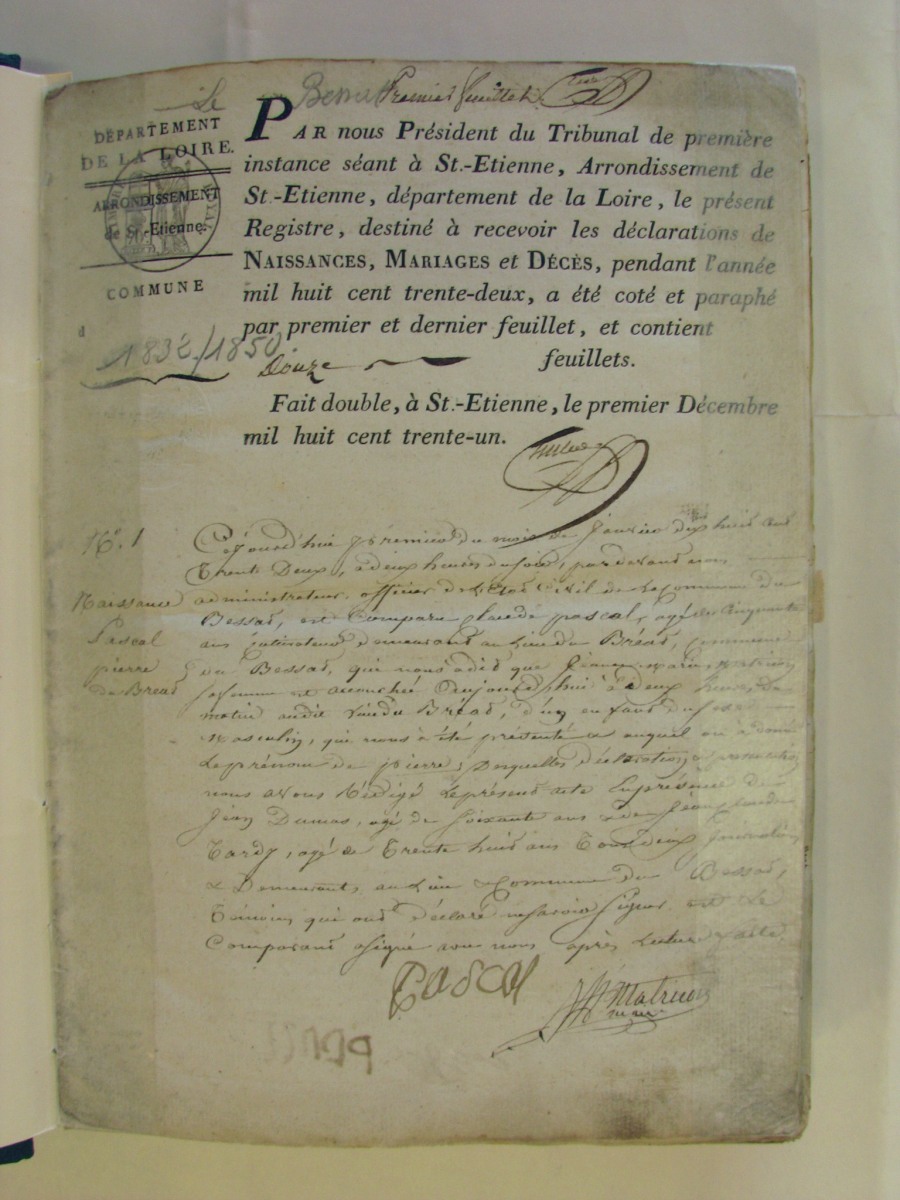 Le Bessat Premier feuillet
DÉPARTEMENT
DE LA LOIRE.
ARRONDISSEMENT
de St.-Etienne.
COMMUNE
d
1832/1850
PAR nous Président du Tribunal de première
instance séant à St.-Etienne, Arrondissement de
St.-Etienne, département de la Loire, le présent
Registre, destiné à recevoir les déclarations de
NAISSANCES, MARIAGES et DÉCÈS, pendant l'année
mil huit cent trente-deux, a été coté et paraphé
par premier et dernier feuillet, et contient
Douze feuillets.
Fait double, à St.-Etienne, le premier Décembre
mil huit cent trente-un.
N°. 1
Naissance
Pascal
pierre
du Bréas
Cejourd'hui premier du mois de janvier dix huit cent
Trente Deux, à deux heures du soir, pardevant nous
administrateur officier de L'état Civil de la Commune du
Bessat, est Comparu claude pascal, agé de Cinquante
ans Cultivateur demeurant au Lieu du Bréas, Commune
du Bessat, qui nous a dit que jeanne Marie Matricon
sa femme est accouchée Aujourd'hui à deux heures Du
matin au dit Lieu du Bréas, d'un enfant du sexe
Masculin, qui nous a été présenté & auquel on a donné
Le prénom de pierre, Desquelles déclaration & présentation
nous avons Rédigé Le présent acte En présence de
jean Dumas, agé de soixante ans & de jean
Tardy, agé de Trente huit ans Tous deux
& Demeurants au Lieu & Commune du Bessat,
Témoins qui ont Déclaré ne savoir signer et Le
Comparant a signé avec nous après Lecture faite
PASCAL
Matricon
maire